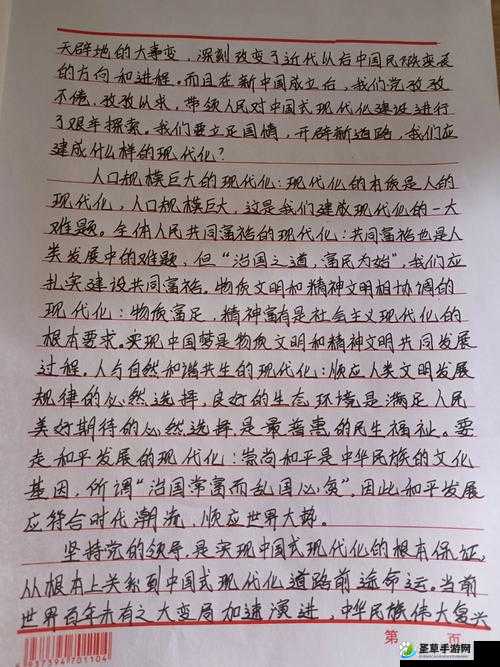 天辟地的大事变，深刻改变了近代以后中国民族发展
的方向和进程。而且在新中国成立后，我们党孜孜
不倦，孜孜以求，带领人民对中国式现代化建设进行
了艰辛探索。我们要立足国情，开辟新道路，我们应
建成什么样的现代化？
人口规模巨大的现代化：现代化的本质是人的
现代化，人口规模巨大，这是我们建成现代化的一大
难题。全体人民共同富裕的现代化：共同富裕也是人
类发展中的难题；但“治国之道，富民为始”，我们应
扎实建设共同富裕。物质文明和精神文明相协调的
现代化：物质富足，精神富有是社会主义现代化的
根本要求。实现中国梦是物质文明和精神文明共同发展
过程。人与自然和谐共生的现代化：顺应人类文明发展
规律的必然选择，良好的生态环境是满足人民
美好期待的必然选择，是最普惠的民生福祉。要
走和平发展的现代化：崇尚和平是中华民族的文化
基因，所谓“治国常富而乱国必贫”，因此和平发展
应符合时代潮流，顺应世界大势。
坚持党的领导，是实现中国式现代化的根本保证，
从根本上关系到中国式现代化道路前途命运。当前
世界百年未有之大变局加速演进，中华民族伟大复兴
697394701104
第 页
圣草手游网